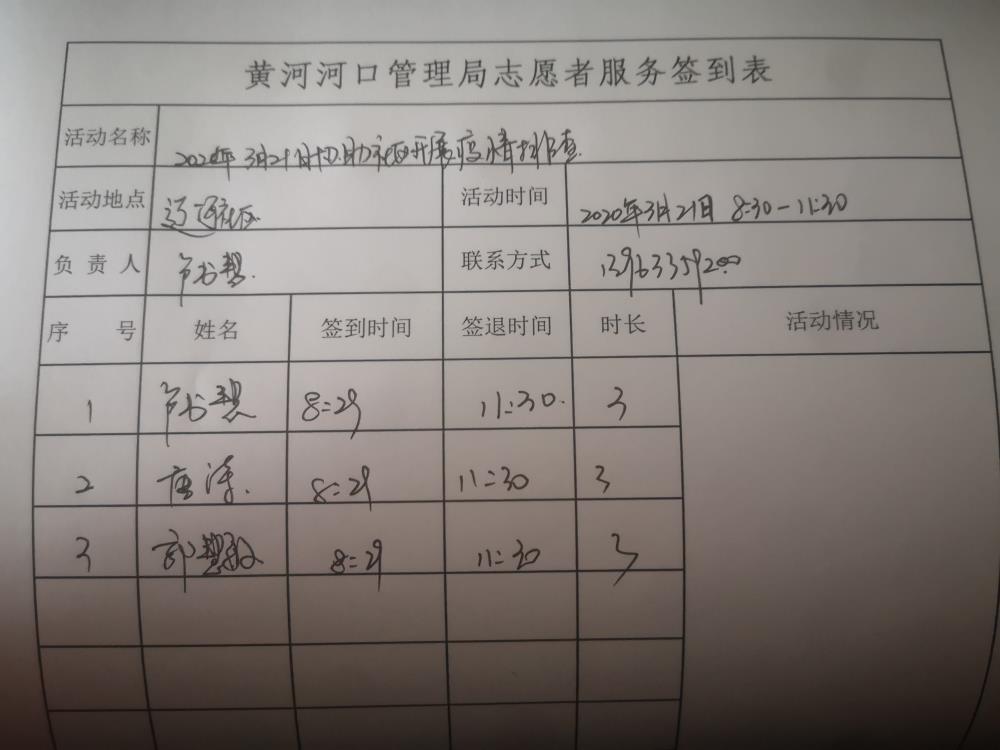 黄河河口管理局志愿者服务签到表
活动名称 2020年3月21日协助社区开展疫情排查
活动地点 社区 活动时间 2020年3月21日 8:30-11:30
负责人 联系方式 13963359200
序号 姓名 签到时间 签退时间 时长 活动情况
1 8:29 11:30 3
2 唐涛 8:29 11:30 3
3 8:29 11:30 3